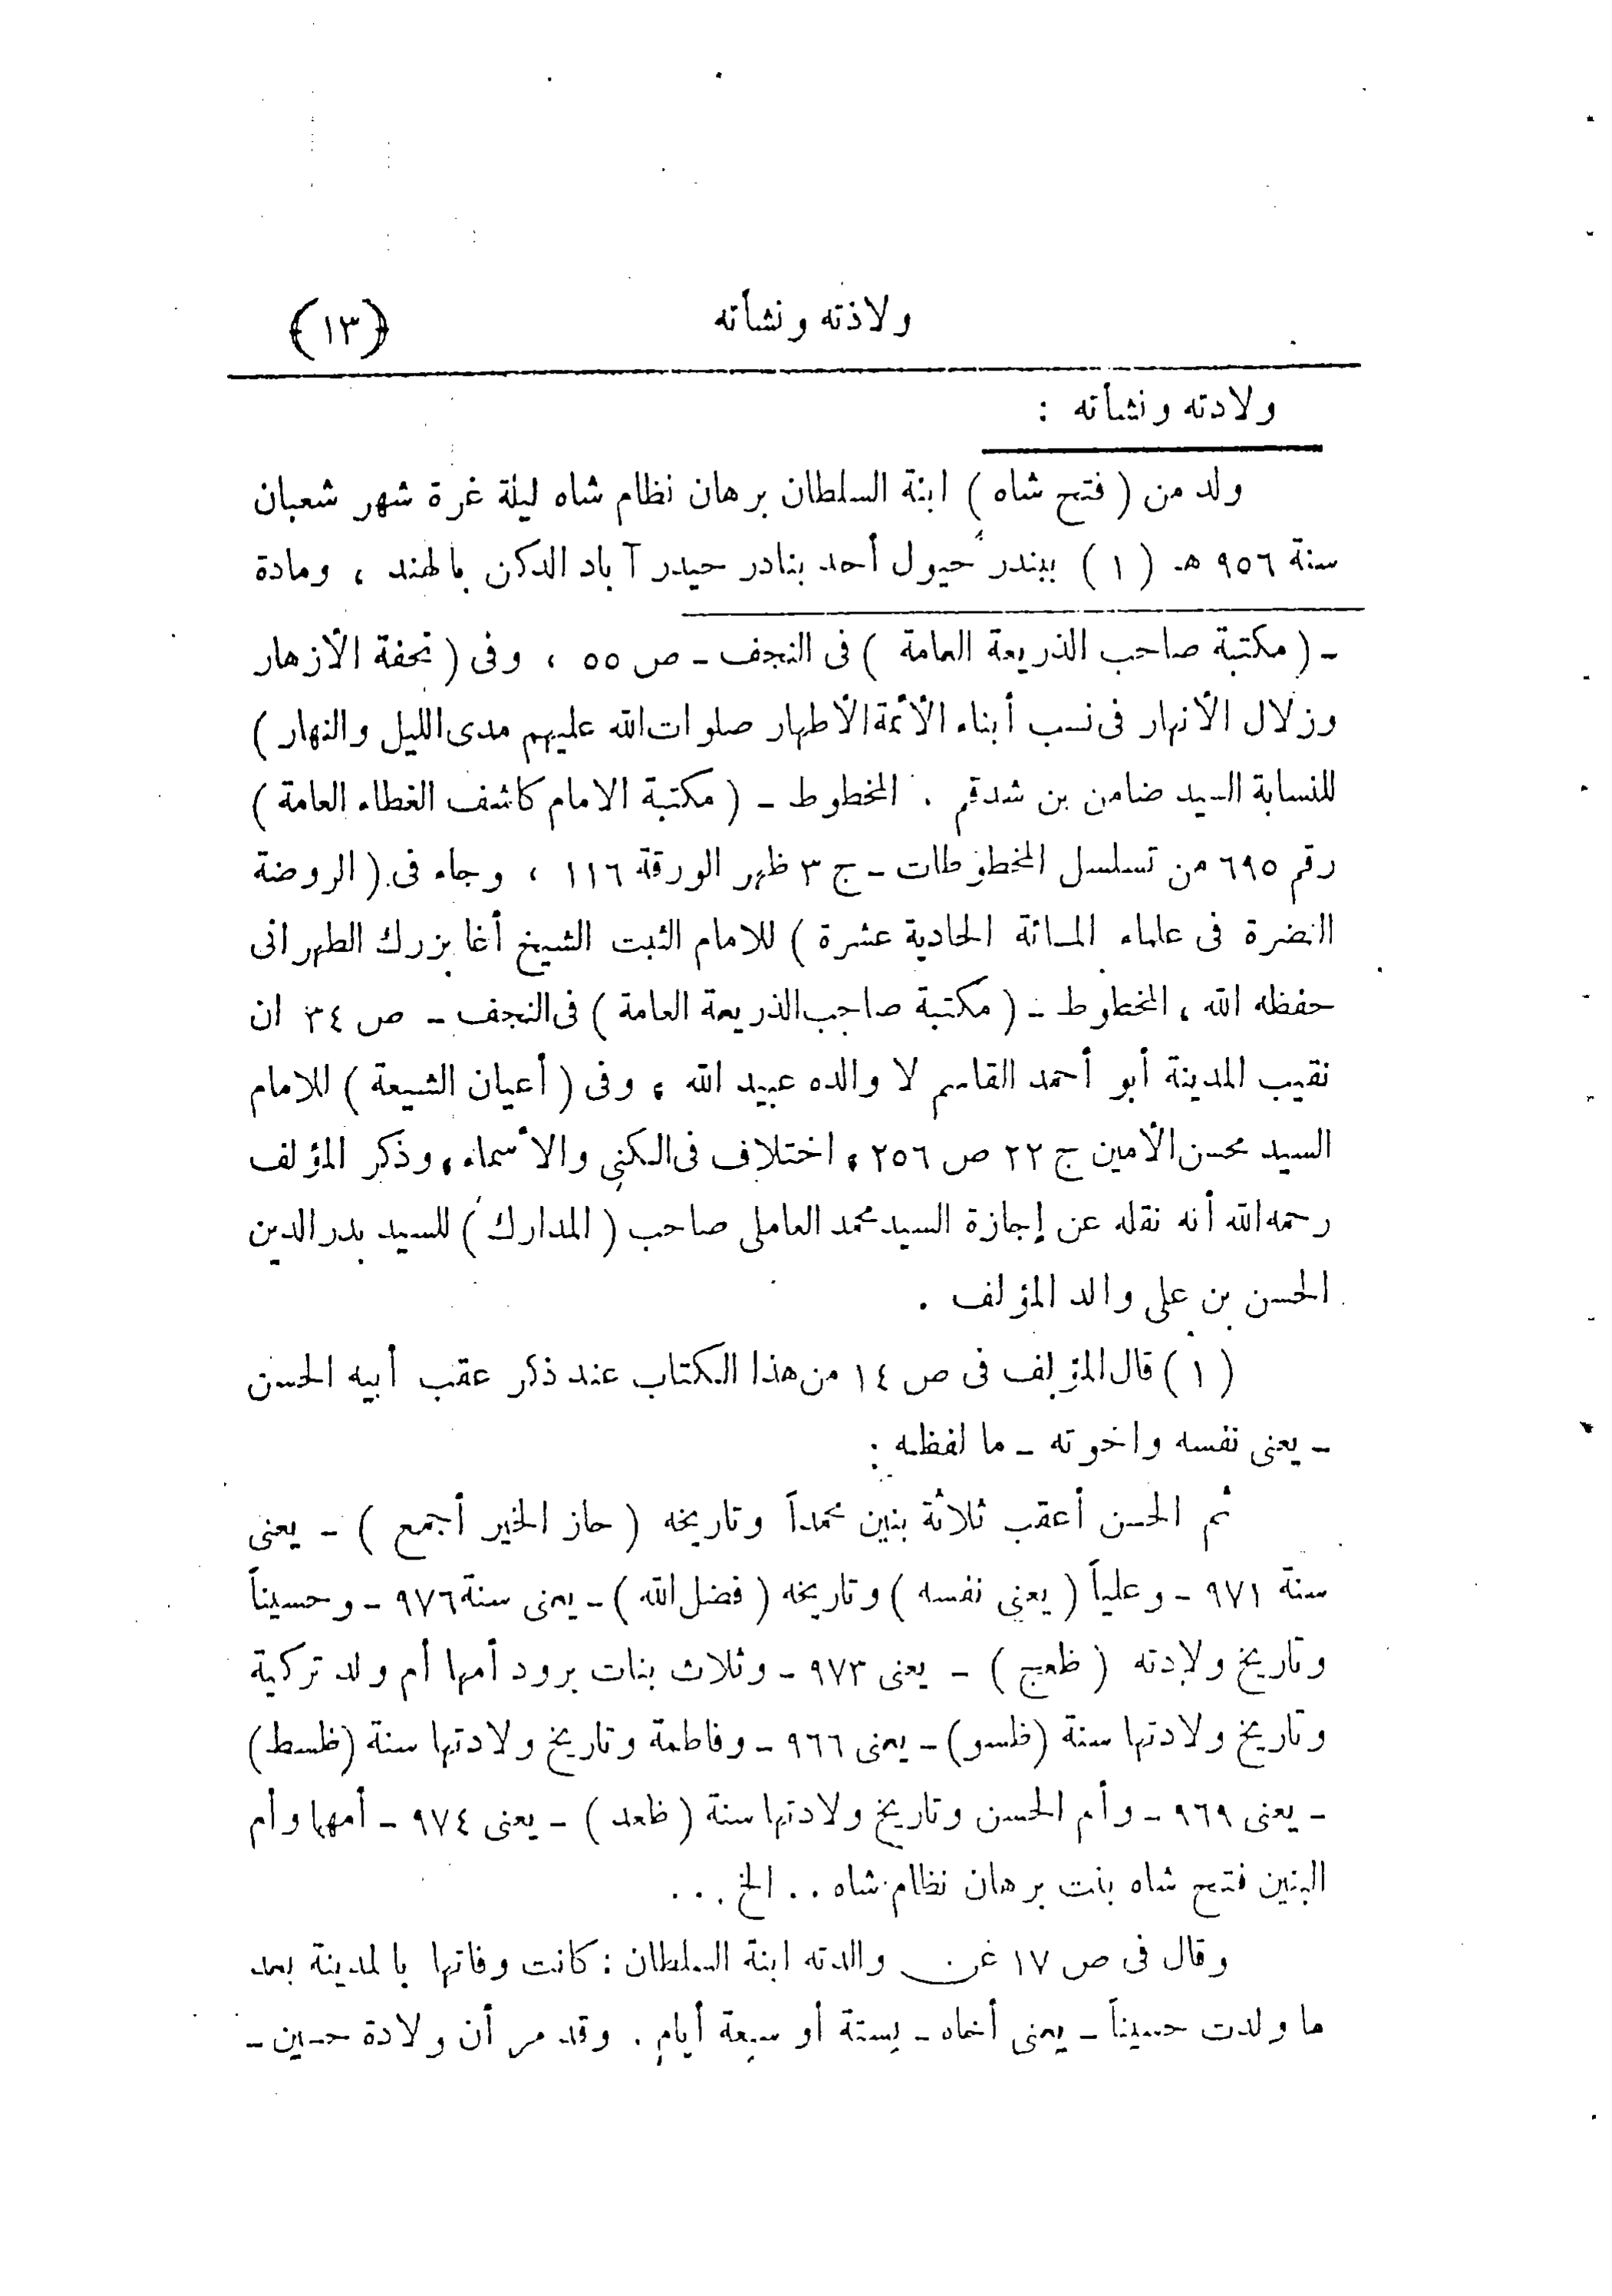 ولادته ونشأته
(١٣)
ولادته ونشأته :
ولد من ( فتح شاه ) ابنة السلطان برهان نظام شاه ليلة غرة شهر شعبان
سنة ٩٥٦ هـ ( ١ ) ببندر حيول أحد بنادر حيدر آباد الدكن بالهند ، ومادة
ـ ( مكتبة صاحب الذريعة العامة ) فى النجف ـ ص ٥٥ ، وفى ( تحفة الأزهار
وزلال الأنهار فى نسب أبناء الأئمة الأطهار صلوات الله عليهم مدى الليل والنهار )
للنسابة السيد ضامن بن شدقم . المخطوط ـ ( مكتبة الامام كاشف الغطاء العامة )
رقم ٦٩٥ من تسلسل المخطوطات ـ ج ٣ ظهر الورقة ١١٦ ، وجاء فى ( الروضة
النضرة فى علماء المائة الحادية عشرة ) للامام الثبت الشيخ أغا بزرك الطهرانى
حفظه الله ، المخطوط ـ ( مكتبة صاحب الذريعة العامة ) فى النجف ـ ص ٣٤ ان
نقيب المدينة أبو أحمد القاسم لا والده عبيد الله ، وفى ( أعيان الشيعة ) للامام
السيد محسن الأمين ج ٢٢ ص ٢٥٦ ، اختلاف فى الكنى والأسماء ، وذكر المؤلف
رحمه الله أنه نقله عن إجازة السيد محمد العاملى صاحب ( المدارك ) للسيد بدر الدين
الحسن بن على والد المؤلف .
( ١ ) قال المؤلف فى ص ١٤ من هذا الكتاب عند ذكر عقب أبيه الحسن
ـ يعنى نفسه واخوته ـ ما لفظه :
ثم الحسن أعقب ثلاثة بنين محمداً وتاريخه ( حاز الخير أجمع ) ـ يعنى
سنة ٩٧١ ـ وعلياً ( يعنى نفسه ) وتاريخه ( فضل الله ) ـ يعنى سنة ٩٧٦ ـ وحسيناً
وتاريخ ولادته ( ظعج ) ـ يعنى ٩٧٣ ـ وثلاث بنات برود أمها أم ولد تركية
وتاريخ ولادتها سنة ( ظسو ) ـ يعنى ٩٦٦ ـ وفاطمة وتاريخ ولادتها سنة ( ظسط )
ـ يعنى ٩٦٩ ـ وأم الحسن وتاريخ ولادتها سنة ( ظعد ) ـ يعنى ٩٧٤ ـ أمهما وأم
البنين فتح شاه بنت برهان نظام شاه .. الخ ...
وقال فى ص ١٧ عن والدته ابنة السلطان : كانت وفاتها بالمدينة بعد
ما ولدت حسيناً ـ يعنى أخاه ـ بستة أو سبعة أيام . وقد مر أن ولادة حسين ـ